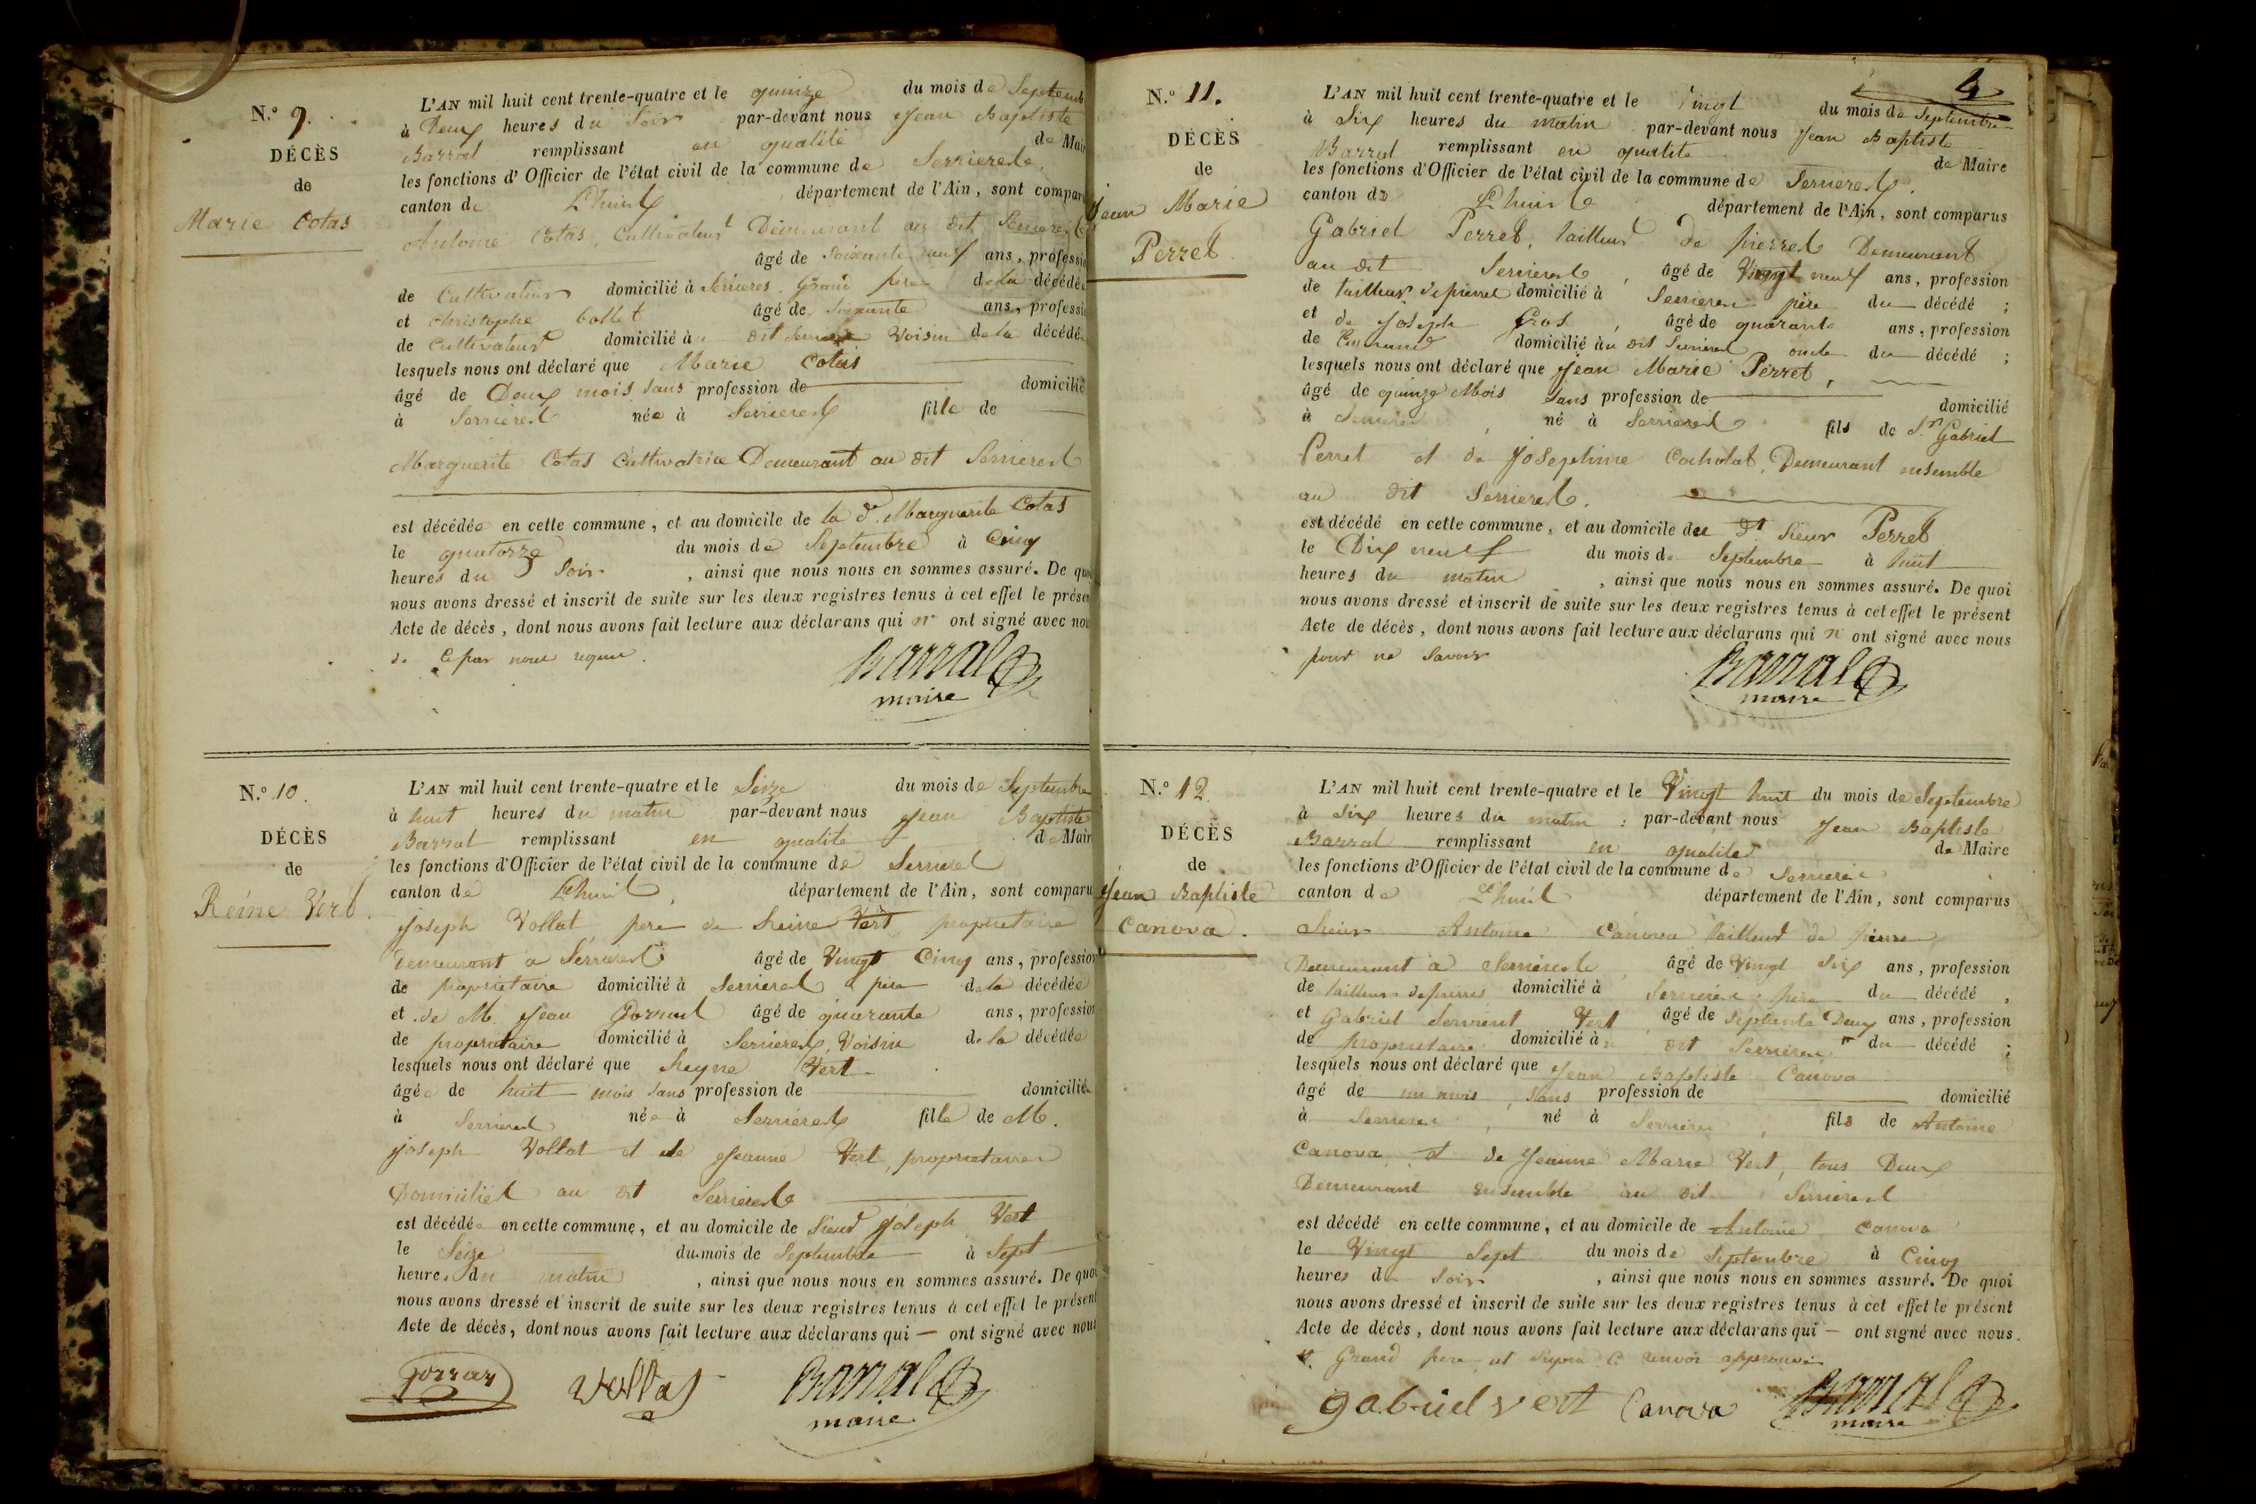 N.º 9.
DÉCÈS
de
Marie Cotas
L'AN mil huit cent trente-quatre et le quinze du mois de Septemb
à Deux heures du Soir par-devant nous Jean Baptiste
Barral remplissant en qualité de Mair
les fonctions d'Officier de l'état civil de la commune de Serrieres
canton de Lhuis département de l'Ain, sont compar
Antoine Cotas, Cultivateur Demeurant au dit Serrieres
âgé de Soixante neuf ans, professi
de Cultivateur domicilié à Serrieres Grand pere de la décédé
et Christophe Collet âgé de Soixante ans, professi
de Cultivateur domicilié à dit Voisin de la décédé
lesquels nous ont déclaré que Marie Cotas
âgé de Deux mois sans profession de domicilié
à Serrieres née à Serrieres fille de
Marguerite Cotas Cultivatrice Demeurant au dit Serrieres
est décédée en cette commune, et au domicile de la de. Marguerite Cotas
le quatorze du mois de Septembre à Cinq
heures du Soir, ainsi que nous nous en sommes assuré. De quo
nous avons dressé et inscrit de suite sur les deux registres tenus à cet effet le présen
Acte de décès, dont nous avons fait lecture aux déclarans qui n' ont signé avec nou
de ce par nous requis.
Barral
maire
N.º 10.
DÉCÈS
de
Reine Vert.
L'AN mil huit cent trente-quatre et le Seize du mois de Septembre
à huit heures du matin par-devant nous Jean Baptiste
Barral remplissant en qualité de Mair
les fonctions d'Officier de l'état civil de la commune de Serrieres
canton de Lhuis, département de l'Ain, sont comparu
Joseph Vollat pere de Reine Vert proprietaire
Demeurant a Serrieres âgé de Vingt Cinq ans, profession
de proprietaire domicilié à Serrieres pere de la décédée
et de M. Jean âgé de quarante ans, profession
de proprietaire domicilié à Serrieres, Voisin de la décédée
lesquels nous ont déclaré que Reyne Vert
âgée de huit mois sans profession de domiciliée
à Serrieres née à Serrieres fille de M.
Joseph Vollat et de Jeanne Vert, proprietaires
Domiciliés au dit Serrieres
est décédée en cette commune, et au domicile de Sieur Joseph Vert
le Seize du mois de Septembre à Sept
heures du matin, ainsi que nous nous en sommes assuré. De quoi
nous avons dressé et inscrit de suite sur les deux registres tenus à cet effet le présent
Acte de décès, dont nous avons fait lecture aux déclarans qui — ont signé avec nous
Vollat Barral
maire
4
N.º 11.
DÉCÈS
de
Jean Marie
Perret
L'AN mil huit cent trente-quatre et le Vingt du mois de Septembre
à Six heures du matin par-devant nous Jean Baptiste
Barral remplissant en qualité de Maire
les fonctions d'Officier de l'état civil de la commune de Serrieres.
canton de Lhuis département de l'Ain, sont comparus
Gabriel Perret, tailleur de pierres Demeurant
au dit Serrieres, âgé de Vingt neuf ans, profession
de tailleur de pierres domicilié à Serrieres pere du décédé ;
et de Joseph Gros, âgé de quarante ans, profession
de domicilié au dit Serrieres oncle du décédé ;
lesquels nous ont déclaré que Jean Marie Perret,
âgé de quinze Mois Sans profession de domicilié
à Serrieres, né à Serrieres fils de Sr. Gabriel
Perret et de Josephine Cocholat, Demeurant ensemble
au dit Serrieres.
est décédé en cette commune, et au domicile du dt Sieur Perret
le Dix neuf du mois de Septembre à huit
heures du matin, ainsi que nous nous en sommes assuré. De quoi
nous avons dressé et inscrit de suite sur les deux registres tenus à cet effet le présent
Acte de décès, dont nous avons fait lecture aux déclarans qui n' ont signé avec nous
pour ne savoir
Barral
maire
N.º 12
DÉCÈS
de
Jean Baptiste
Canova.
L'AN mil huit cent trente-quatre et le Vingt huit du mois de Septembre
à Six heures du matin par-devant nous Jean Baptiste
Barral remplissant en qualité de Maire
les fonctions d'Officier de l'état civil de la commune de Serrieres
canton de Lhuis département de l'Ain, sont comparus
Sieur Antoine Canova tailleur de pierre
Demeurant a Serrieres, âgé de Vingt Six ans, profession
de tailleur de pierres domicilié à Serrieres pere du décédé,
et Gabriel Vert âgé de Septante Deux ans, profession
de proprietaire domicilié à dit Serrieres du décédé ;
lesquels nous ont déclaré que Jean Baptiste Canova
âgé de un mois, Sans profession de domicilié
à Serrieres, né à Serrieres, fils de Antoine
Canova et de Jeanne Marie Vert, tous Deux
Demeurant ensemble au dit Serrieres
est décédé en cette commune, et au domicile de Antoine Canova
le Vingt Sept du mois de Septembre à Cinq
heures du Soir, ainsi que nous nous en sommes assuré. De quoi
nous avons dressé et inscrit de suite sur les deux registres tenus à cet effet le présent
Acte de décès, dont nous avons fait lecture aux déclarans qui — ont signé avec nous.
Grand pere renvoi approuvé
gabriel vert Canova Barral
maire